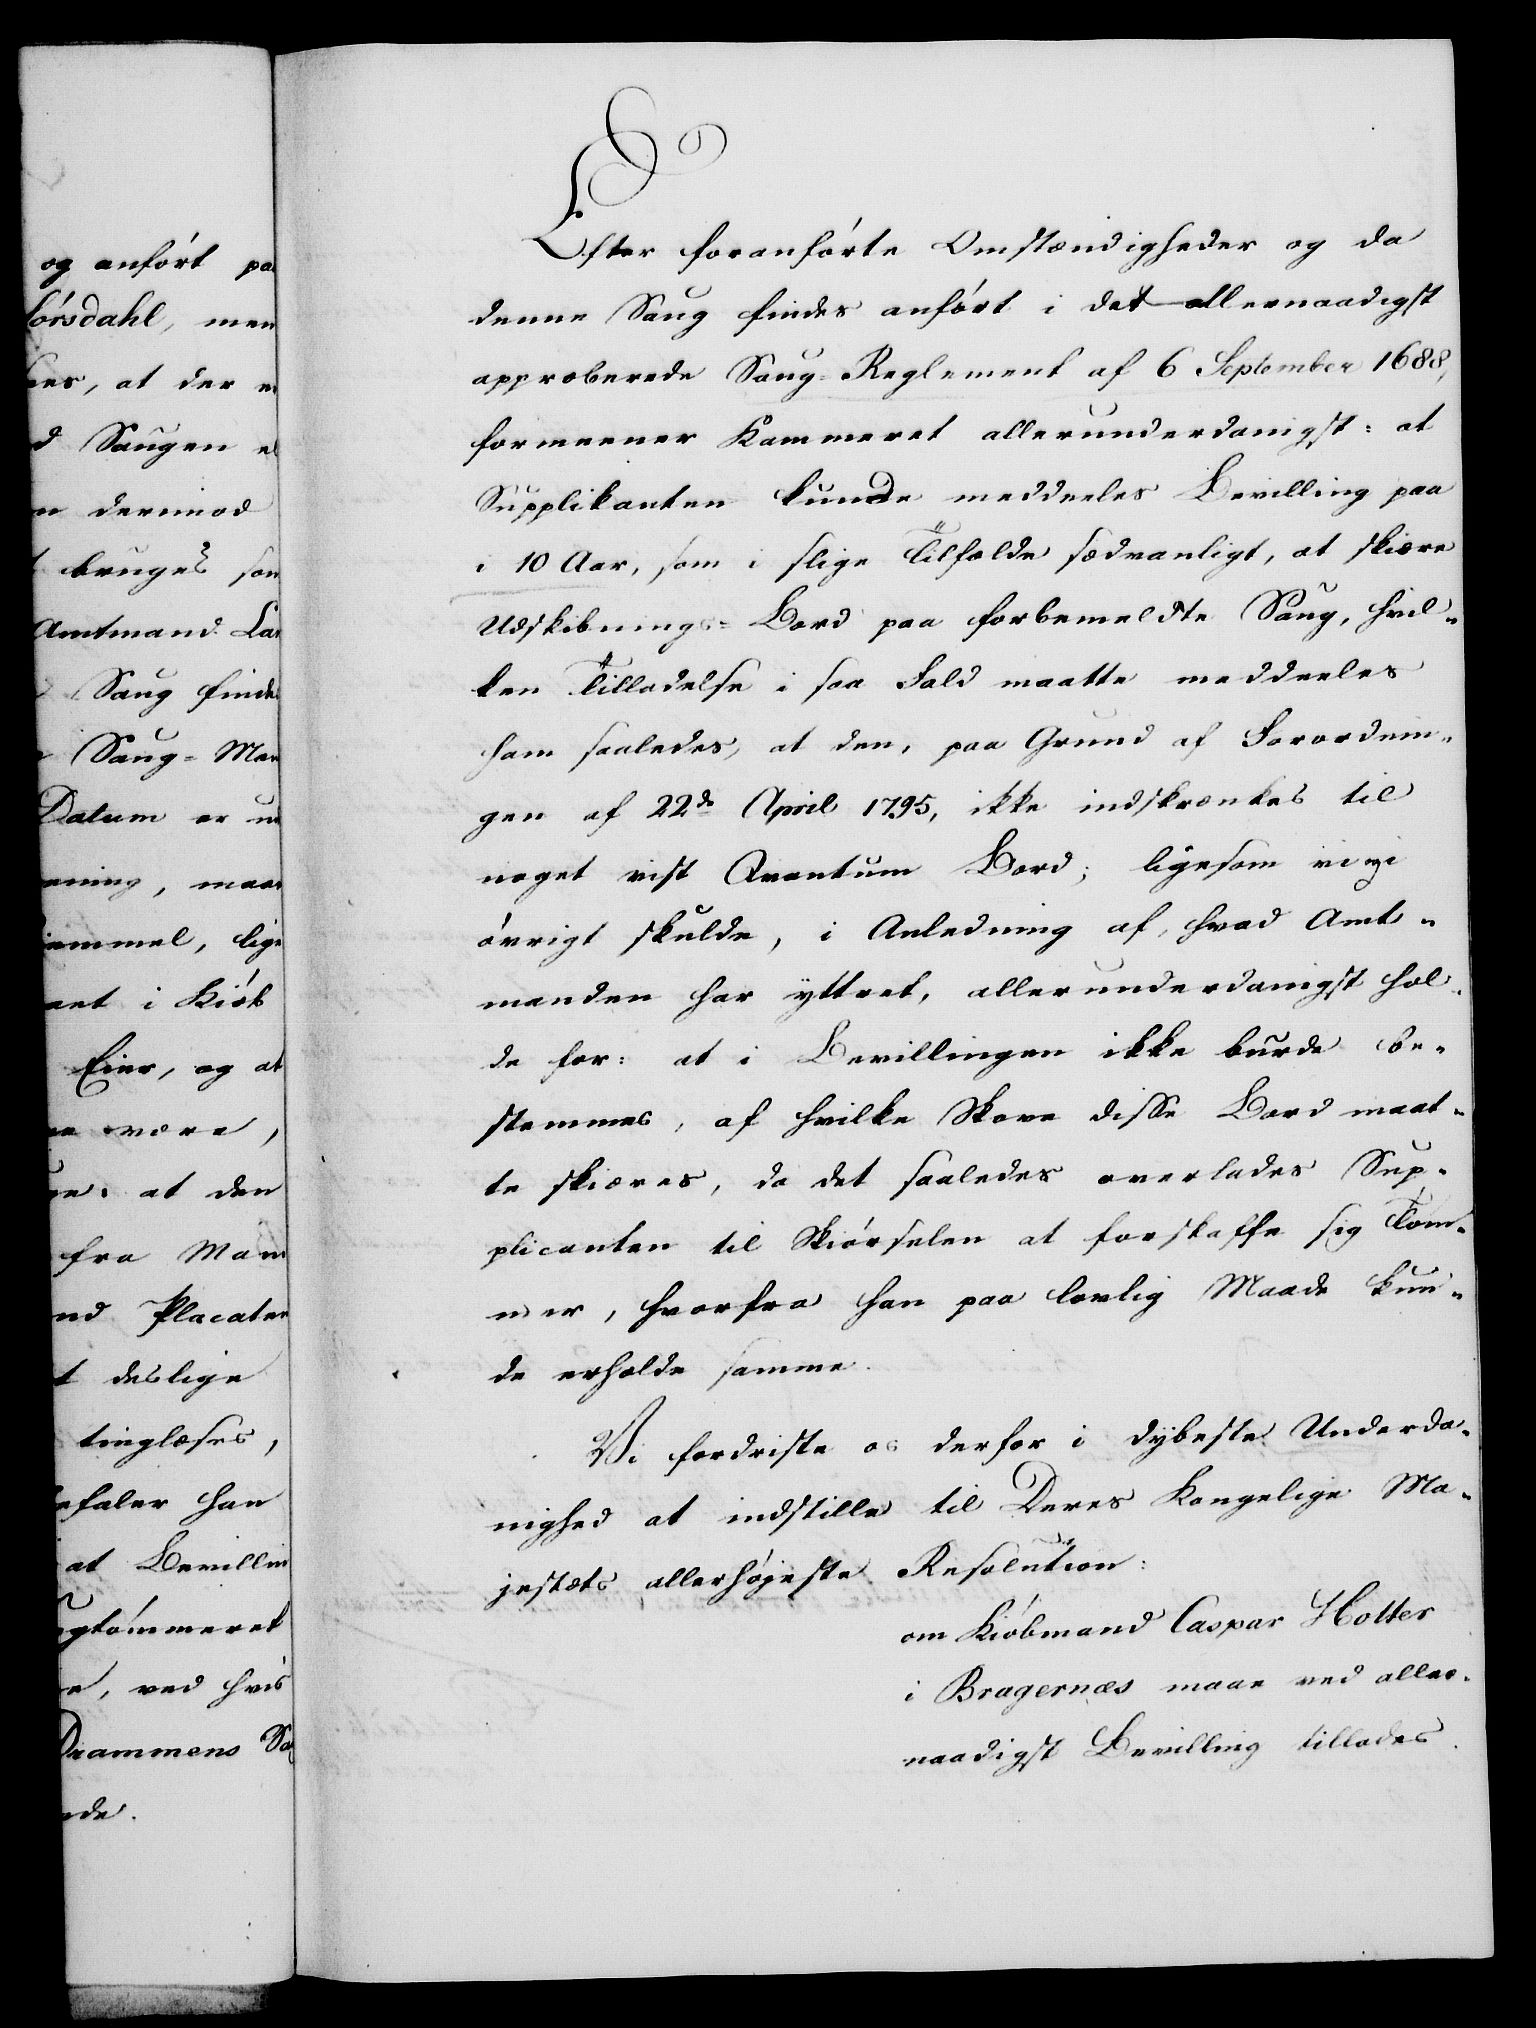 og anført paa
førsdahl, men
nes, at der e
d Saugen el
n derimod
bruges som
Amtmand
Saug findes
Saug-
Datum er
ening, maa
lige
i
Eier, og at
være,
at den
fra
nd Placater
t deslige
tinglæses,
efaler han
at Bevilling
gtømmeret
e, ved hvis
Drammens
nde.
Efter foranførte Omstændigheder og da
denne Saug findes anført i det allernaadigst
approberede Saug-Reglement af 6 September 1688,
formeener Kammeret allerunderdanigst: at
Supplikanten kunde meddeeles Bevilling paa
i 10 Aar, som i slige Tilfælde sædvanligt, at skiære
Udskibnings-Bord paa forbemeldte Saug, hvil-
ken Tilladelse i saa Fald maatte meddeeles
ham saaledes, at den, paa Grund af Forordnin-
gen af 22de April 1795, ikke indskrænkes til
noget vist Qvantum Bord; ligesom vi og i
øvrigt skulde, i Anledning af, hvad Amt-
manden har yttret, allerunderdanigst hol-
de for: at i Bevillingen ikke burde be-
stemmes, af hvilke Skove disse Bord maat-
te skiæres, da det saaledes overlades Sup-
plicanten til Skiørselen at forskaffe sig Tøm-
mer, hvorfra han paa lovlig Maade kun-
de erholde samme.
Vi fordriste os derfor i dybeste Underda-
nighed at indstille til Deres Kongelige Ma-
jestæts allerhøjeste Resolution:
om Kiøbmand Caspar Holter
i Bragernæs maae ved aller-
naadigst Bevilling tillades